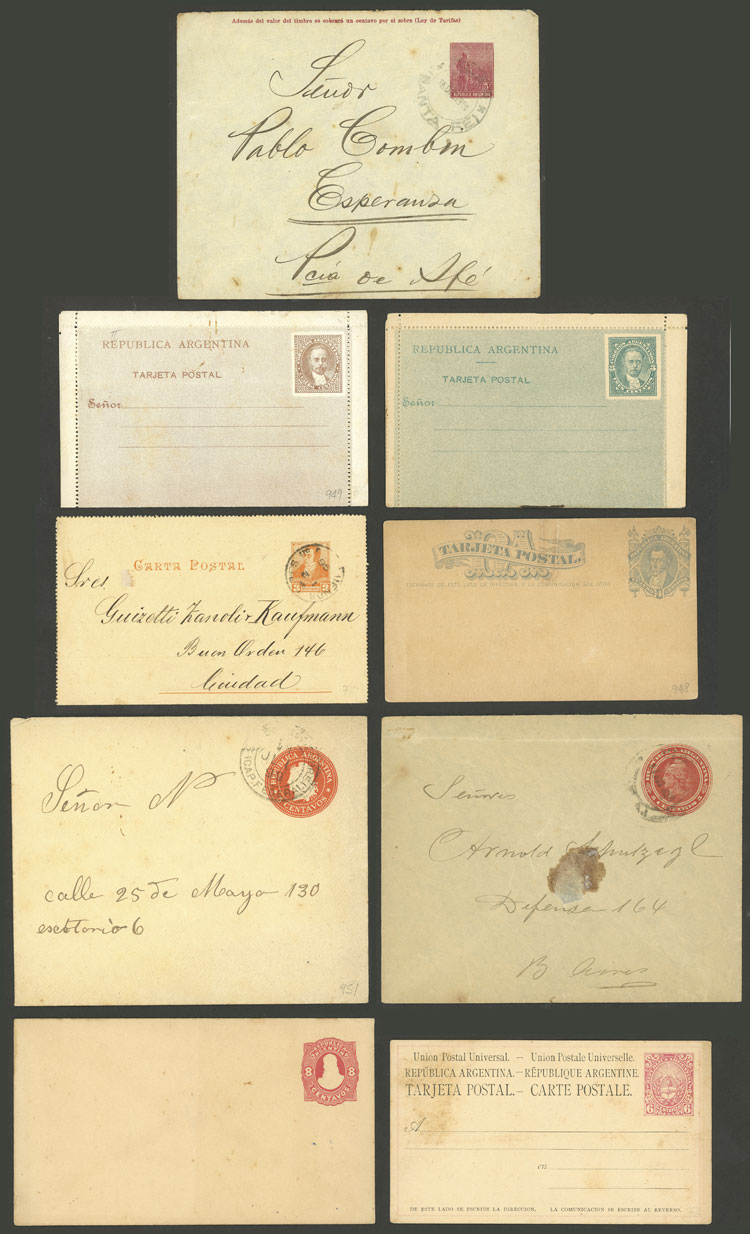 Además del valor del timbre se cobrará un centavo por el sobre (Ley de Tarifas)
5
REPUBLICA ARGENTINA
SANTA FE
Señor
Pablo Comben
Esperanza
Pcia de Sfé
REPUBLICA ARGENTINA
TARJETA POSTAL
Señor
949
REPUBLICA ARGENTINA
TARJETA POSTAL
Señor
CARTA POSTAL
Sres
Guizetti Zanoli y Kaufmann
Buen Orden 146
Ciudad
TARJETA POSTAL.
ESCRIBASE DE ESTE LADO LA DIRECCION, Y LA COMUNICACION DEL OTRO
948
REPUBLICA ARGENTINA
CENTAVOS
Señor N
calle 25 de Mayo 130
escritorio 6
951
Señores
Arnold
Defensa 164
B Aires
REPUBLICA
ARGENTINA
8 8
CENTAVOS
Union Postal Universal. — Union Postale Universelle.
REPÚBLICA ARGENTINA. — RÉPUBLIQUE ARGENTINE
TARJETA POSTAL. — CARTE POSTALE.
6 6
A
en
DE ESTE LADO SE ESCRIBE LA DIRECCION. LA COMUNICACION SE ESCRIBE AL REVERSO.